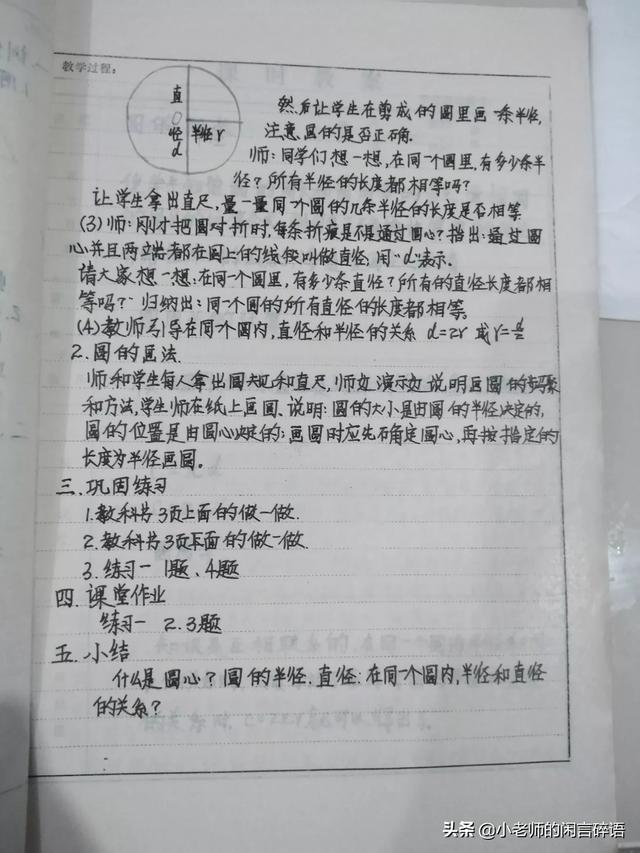 教学过程:
直
径
d
半径r
然后让学生在剪成的圆里画一条半径,
注意画的是否正确.
师:同学们想一想,在同一个圆里,有多少条半
径?所有半径的长度都相等吗?
让学生拿出直尺,量一量同一个圆的几条半径的长度是否相等
(3)师:刚才把圆对折时,每条折痕是不是通过圆心?指出:通过圆
心并且两端都在圆上的线段叫做直径,用"d"表示.
请大家想一想:在同一个圆里,有多少条直径?所有的直径长度都相
等吗?归纳出:同一个圆的所有直径的长度都相等.
(4)教师引导在同一个圆内,直径和半径的关系 d=2r 或 r=d/2
2.圆的画法.
师和学生每人拿出圆规和直尺,师边演示边说明画圆的步骤
和方法,学生师在纸上画圆.说明:圆的大小是由圆的半径决定的,
圆的位置是由圆心决定的;画圆时应先确定圆心,再按指定的
长度为半径画圆。
三.巩固练习
1.教科书3页上面的做一做.
2.教科书3页下面的做一做.
3.练习一 1题、4题
四.课堂作业
练习一 2.3题
五.小结
什么是圆心?圆的半径.直径:在同一个圆内,半径和直径
的关系?
头条 @小老师的闲言碎语